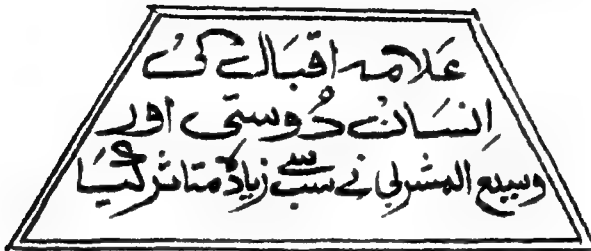 علامہ اقبال کی
انسان دوستی اور
وسیع المشربی نے سب سے زیادہ متاثر کیا